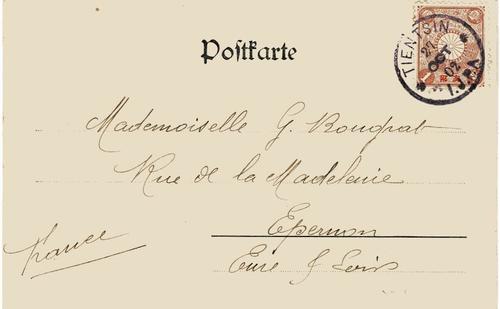 Postkarte
TIENTSIN
27
OCT
02
I.J.P.A
Mademoiselle G. Rougrat
Rue de la Madeleine
Epernon
France
Eure & Loir